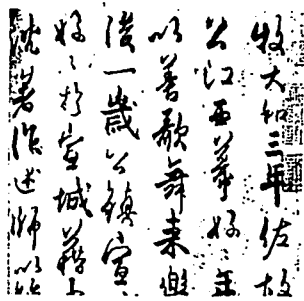 牧大和三年佐故
公江西幕好〻年
以善歌舞来樂
後一歲公鎮宣
好〻於宣城籍
沈著作述師以